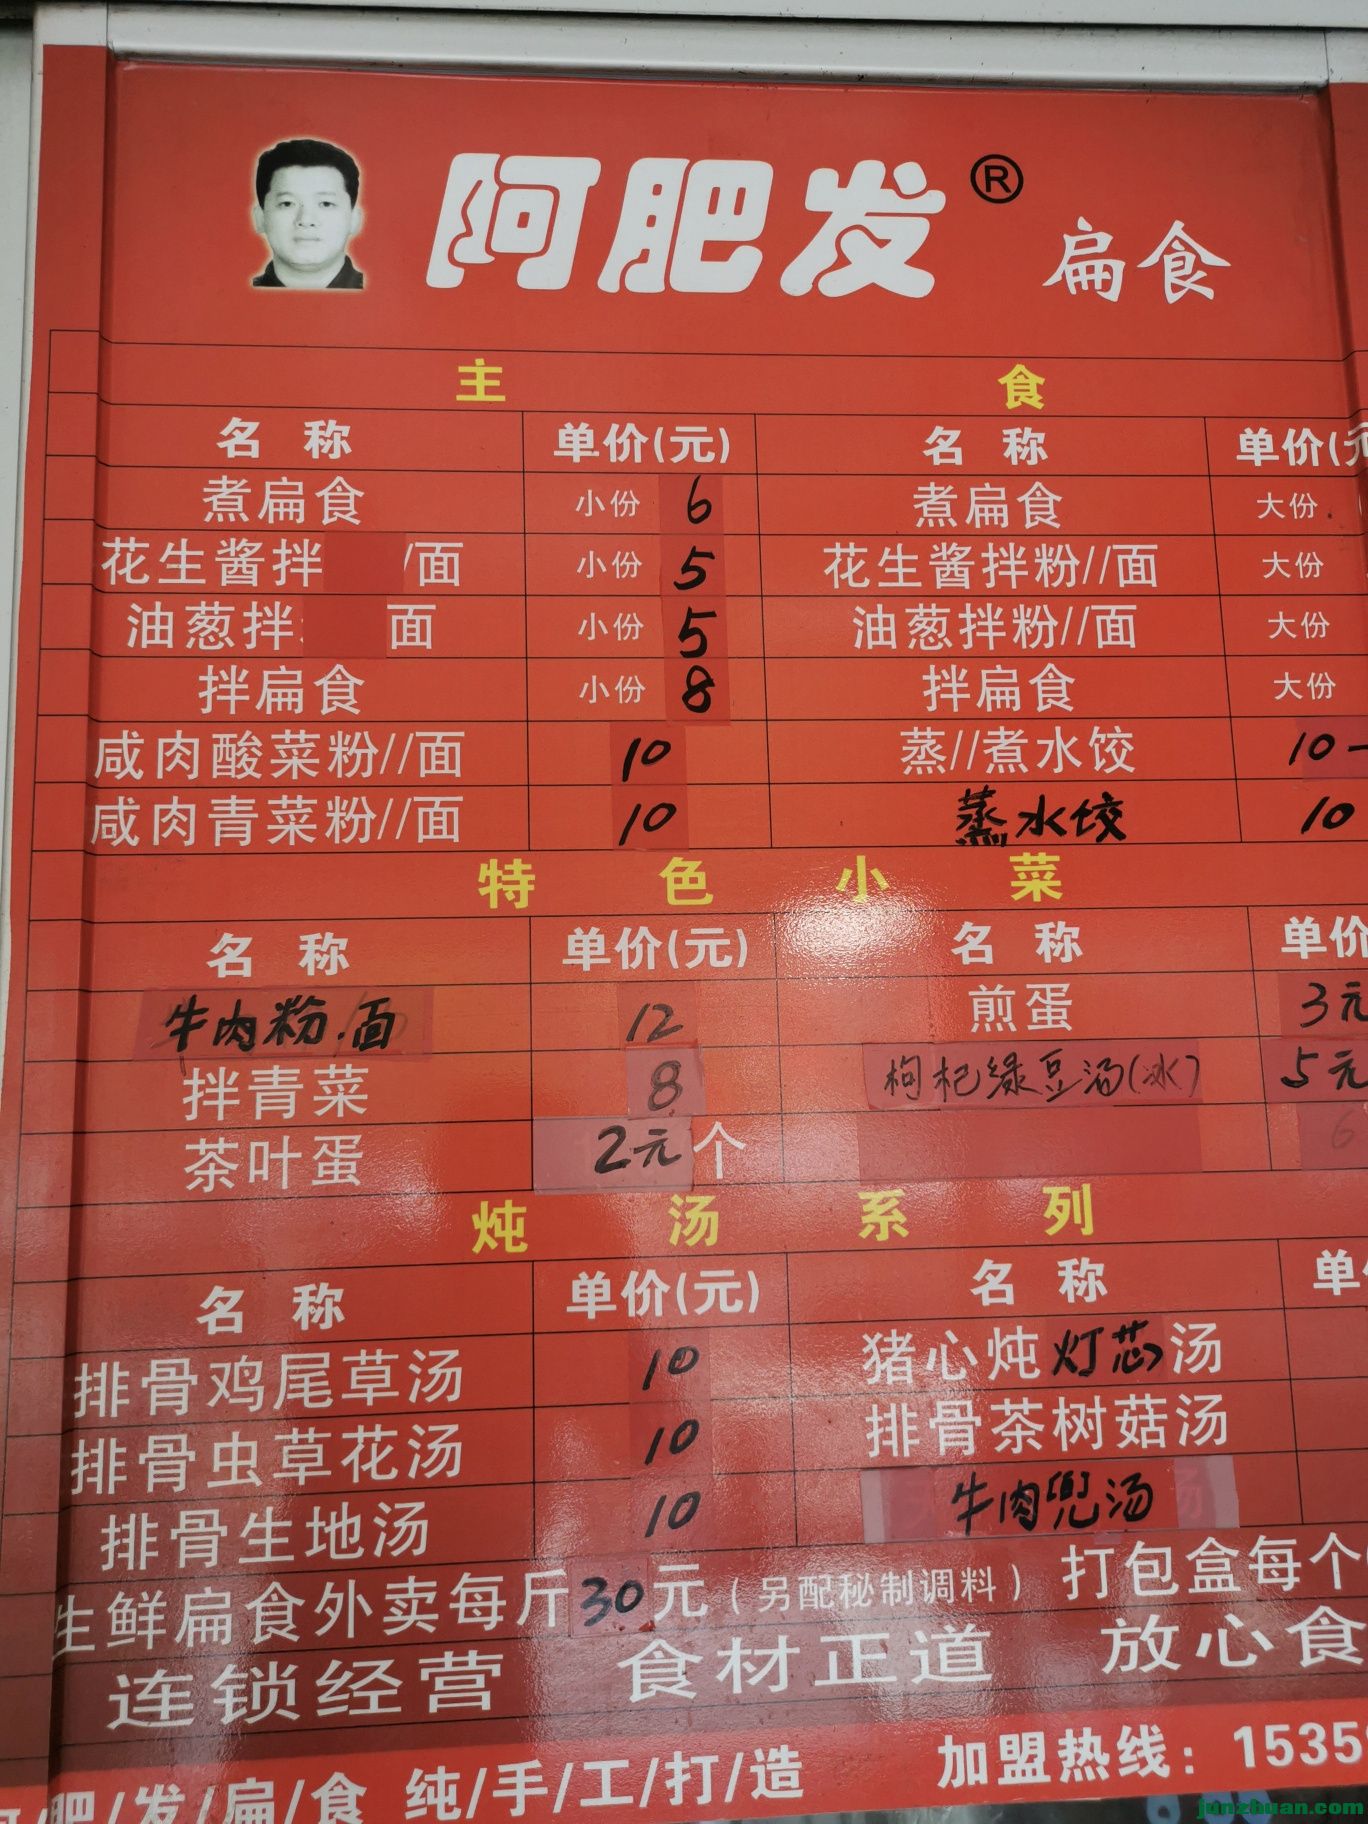 阿肥发® 扁食
主 食
名 称 单价(元) 名 称 单价(元
煮扁食 小份 6 煮扁食 大份
花生酱拌 /面 小份 5 花生酱拌粉//面 大份
油葱拌 面 小份 5 油葱拌粉//面 大份
拌扁食 小份 8 拌扁食 大份
咸肉酸菜粉//面 10 蒸//煮水饺 10
咸肉青菜粉//面 10 蒸水饺 10
特 色 小 菜
名 称 单价(元) 名 称 单价
牛肉粉.面 12 煎蛋 3元
拌青菜 8 枸杞绿豆汤(冰) 5元
茶叶蛋 2元个 6
炖 汤 系 列
名 称 单价(元) 名 称 单
排骨鸡尾草汤 10 猪心炖灯芯汤
排骨虫草花汤 10 排骨茶树菇汤
排骨生地汤 10 牛肉兜汤
生鲜扁食外卖每斤30元(另配秘制调料) 打包盒每个
连锁经营 食材正道 放心食
阿/肥/发/扁/食 纯/手/工/打/造 加盟热线: 1535
junzhuan.com